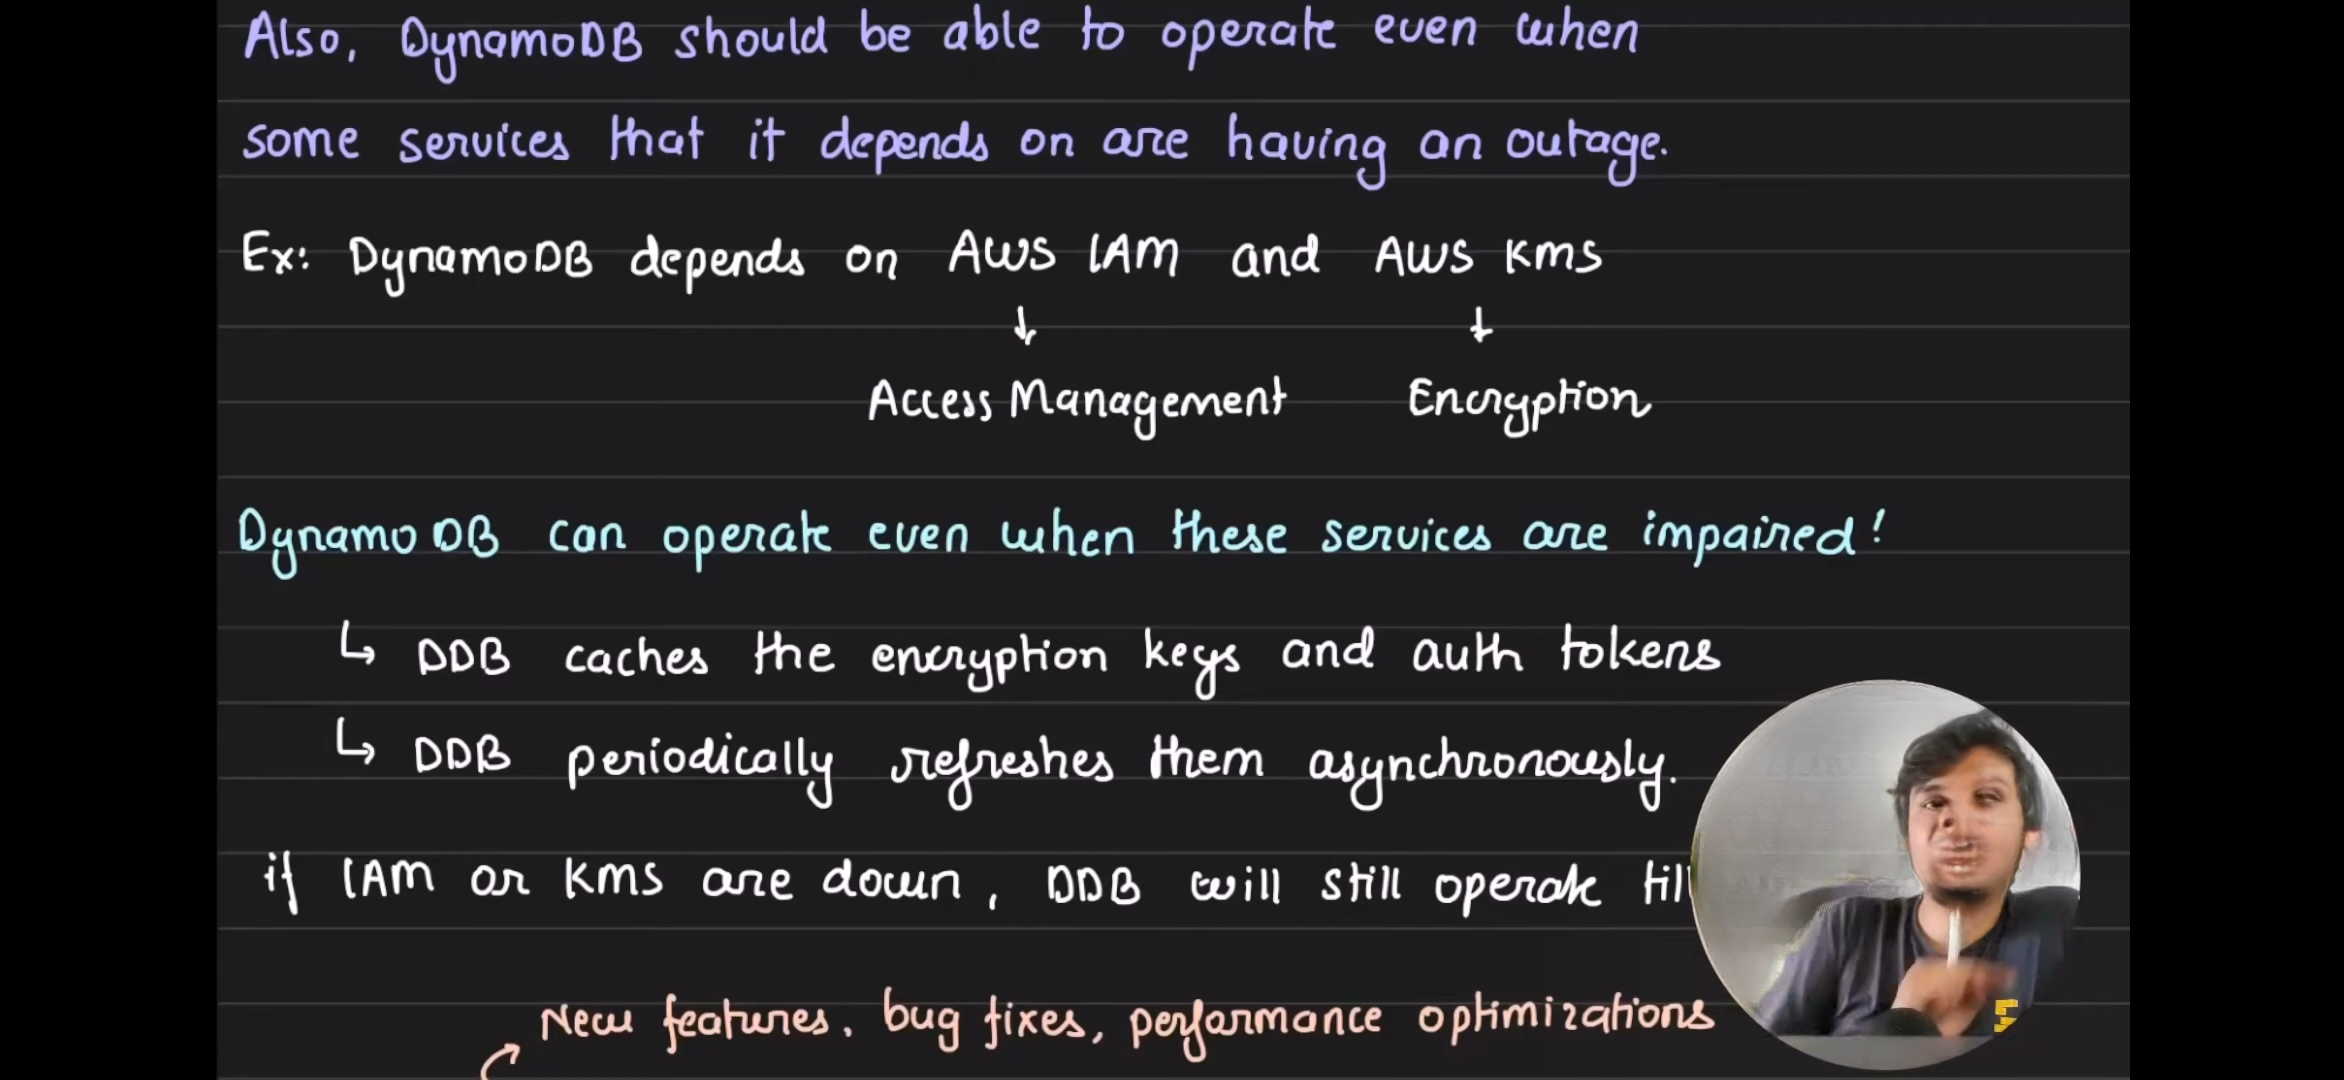 Also, DynamoDB should be able to operate even when
some services that it depends on are having an outage.
Ex: DynamoDB depends on AWS IAM and AWS KMS
↓ ↓
Access Management Encryption
DynamoDB can operate even when these services are impaired!
↳ DDB caches the encryption keys and auth tokens
↳ DDB periodically refreshes them asynchronously.
if IAM or KMS are down, DDB will still operate till
New features, bug fixes, performance optimizations